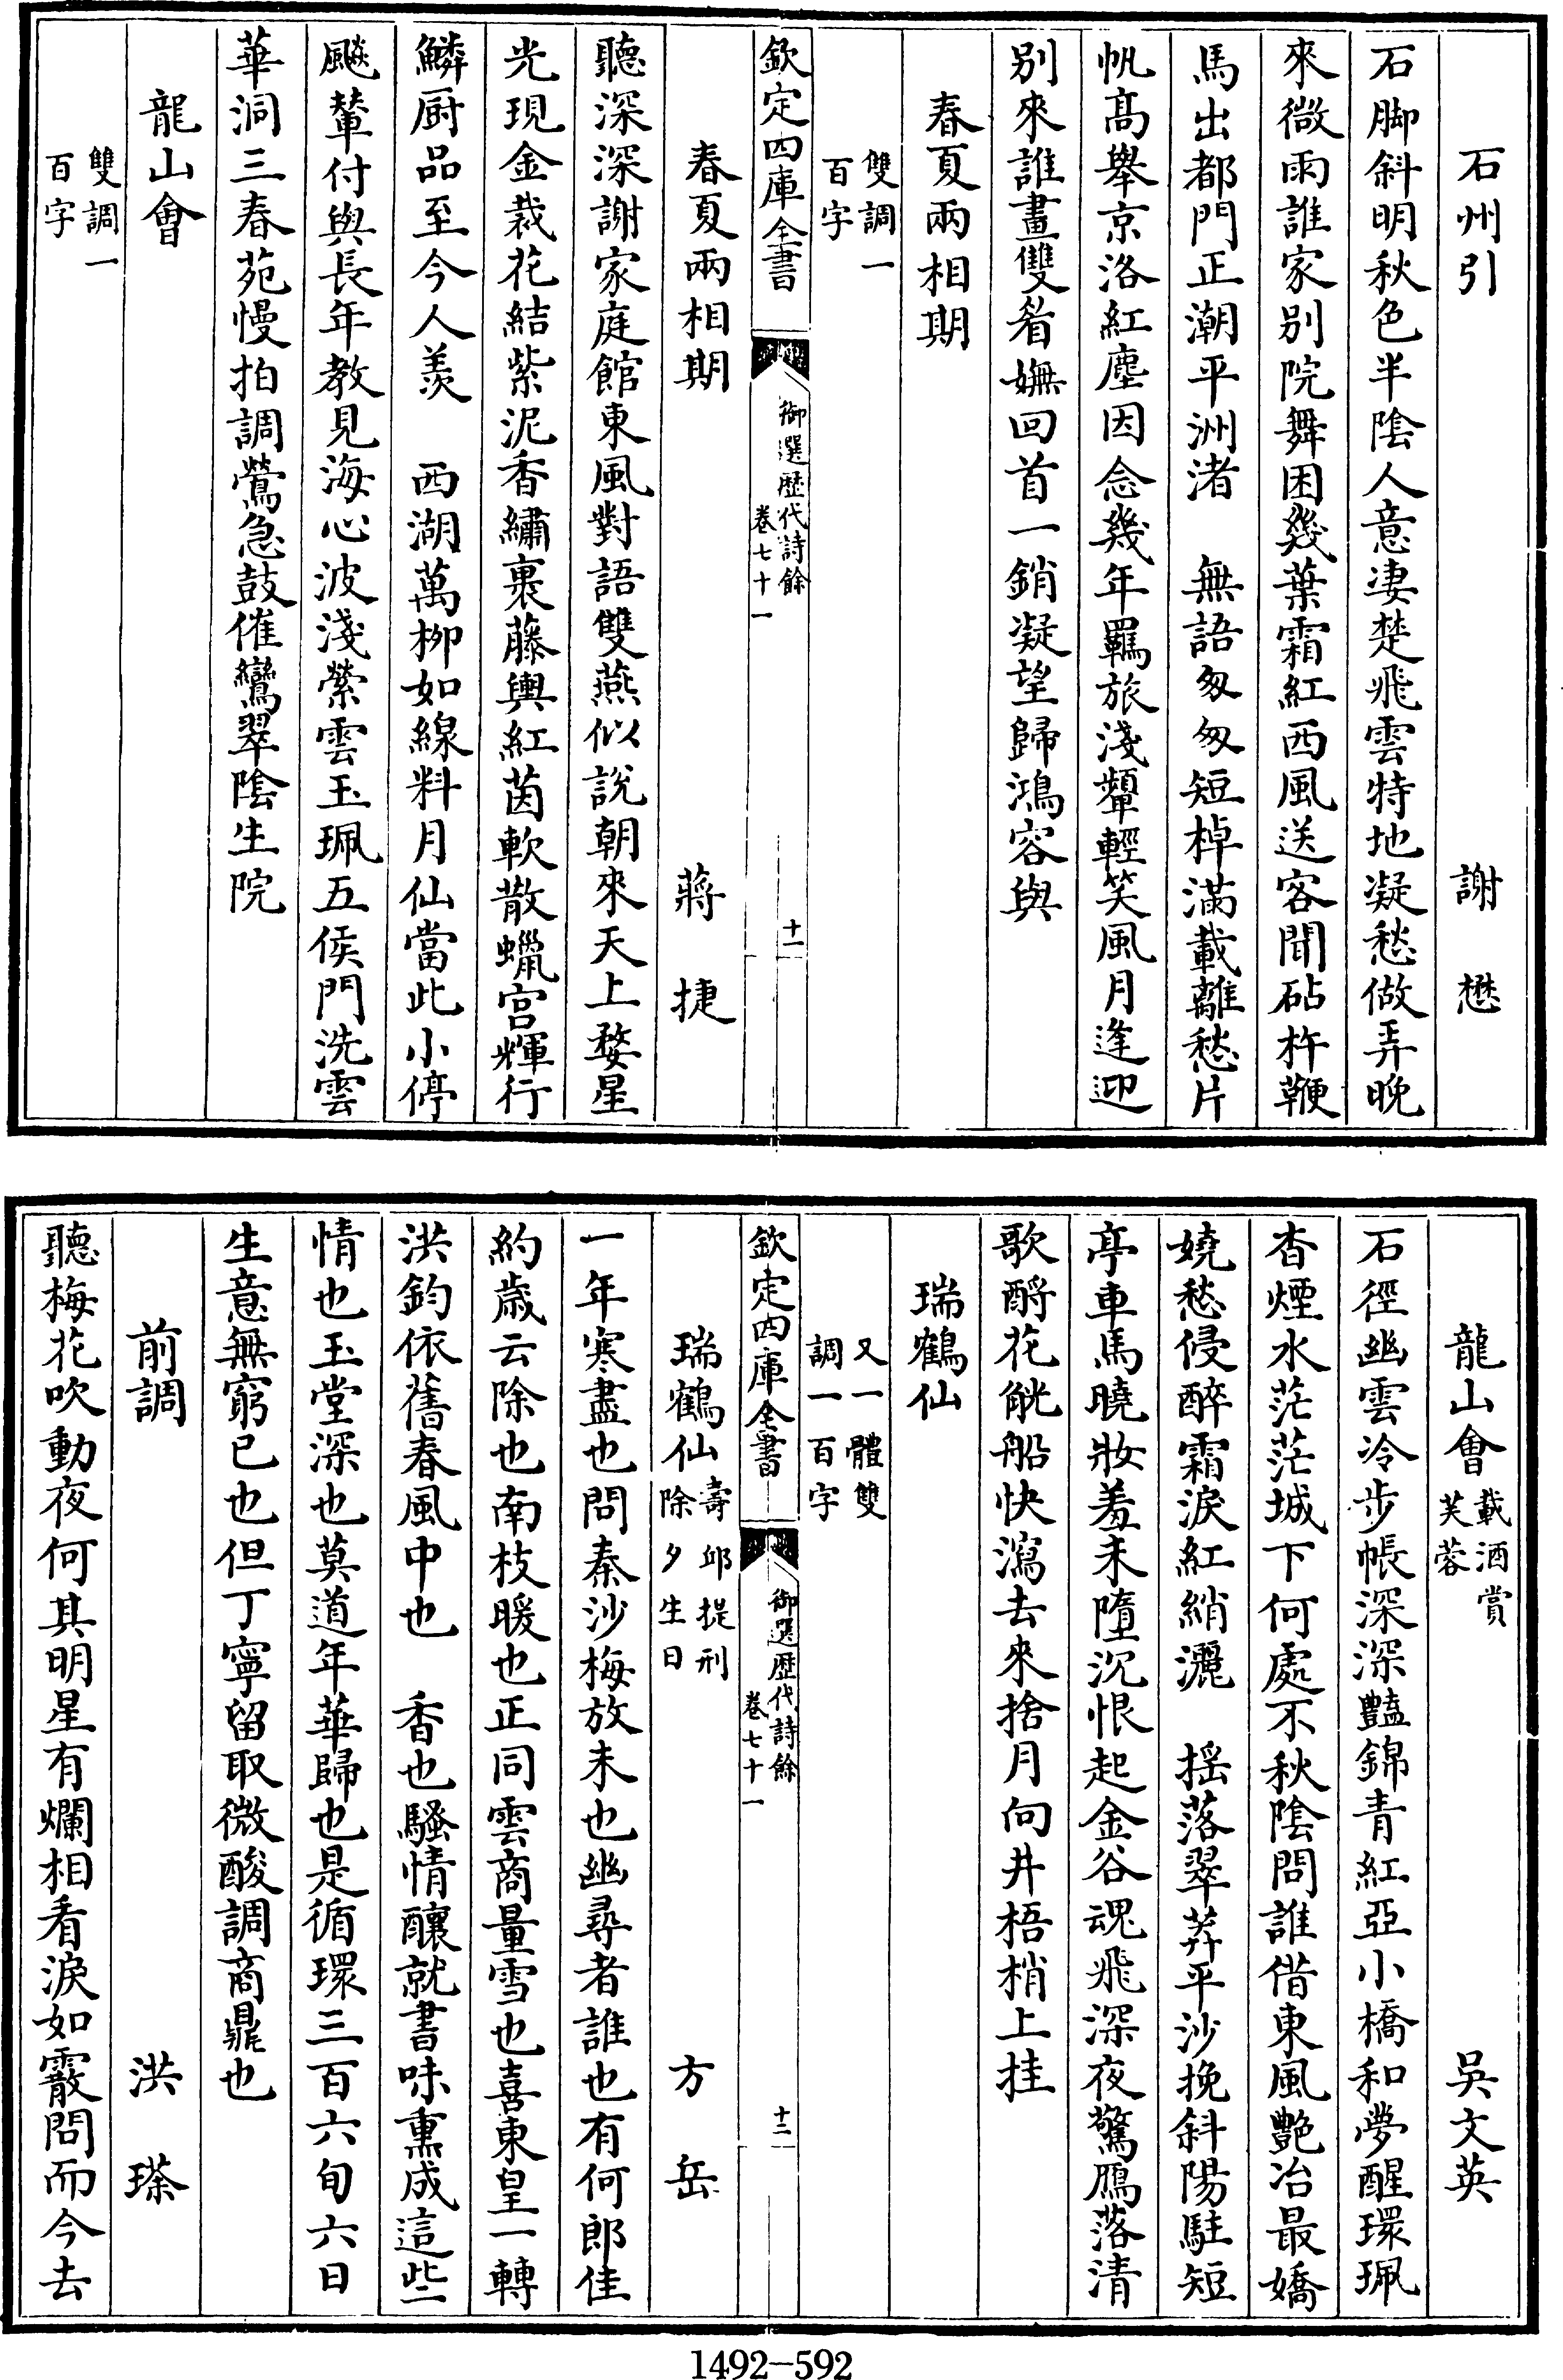 石州引　謝　懋
石脚斜明秋色半陰人意凄楚飛雲特地凝愁做弄晚
來微雨誰家别院舞困幾葉霜紅西風送客聞砧杵鞭
馬出都門正潮平洲渚　無語匆匆短棹滿載離愁片
帆高舉京洛紅塵因念幾年羈旅淺顰輕笑風月逢迎
别來誰畫雙眉嫵回首一銷凝望歸鴻容與
春夏兩相期
雙調一
百字
欽定四庫全書
御選歴代詩餘
卷七十一
十一
春夏兩相期　蔣　捷
聽深深謝家庭館東風對語雙燕似説朝來天上婺星
光現金裁花結紫泥香繡裹藤輿紅茵軟散蠟宮輝行
鱗厨品至今人羨　西湖萬柳如線料月仙當此小停
飈輦付與長年教見海心波淺縈雲玉珮五侯門洗雲
華洞三春苑慢拍調鶯急鼓催鸞翠陰生院
龍山會
雙調一
百字
龍山會
載酒賞
芙蓉
吳文英
石徑幽雲冷步帳深深豔錦青紅亞小橋和夢醒環珮
杳煙水茫茫城下何處不秋陰問誰借東風艷冶最嬌
嬈愁侵醉霜淚紅綃灑　揺落翠莽平沙挽斜陽駐短
亭車馬曉妝羞未墮沉恨起金谷魂飛深夜驚鴈落清
歌酹花觥船快瀉去來捨月向井梧梢上挂
瑞鶴仙
又一體雙
調一百字
欽定四庫全書
御選歴代詩餘
卷七十一
十二
瑞鶴仙
壽邱提刑
除夕生日
方　岳
一年寒盡也問秦沙梅放未也幽尋者誰也有何郎佳
約歳云除也南枝暖也正同雲商量雪也喜東皇一轉
洪鈞依舊春風中也　香也騷情釀就書味熏成這些
情也玉堂深也莫道年華歸也是循環三百六旬六日
生意無窮已也但丁寧留取微酸調商鼎也
前調　洪　瑹
聽梅花吹動夜何其明星有爛相看淚如霰問而今去
1492—592